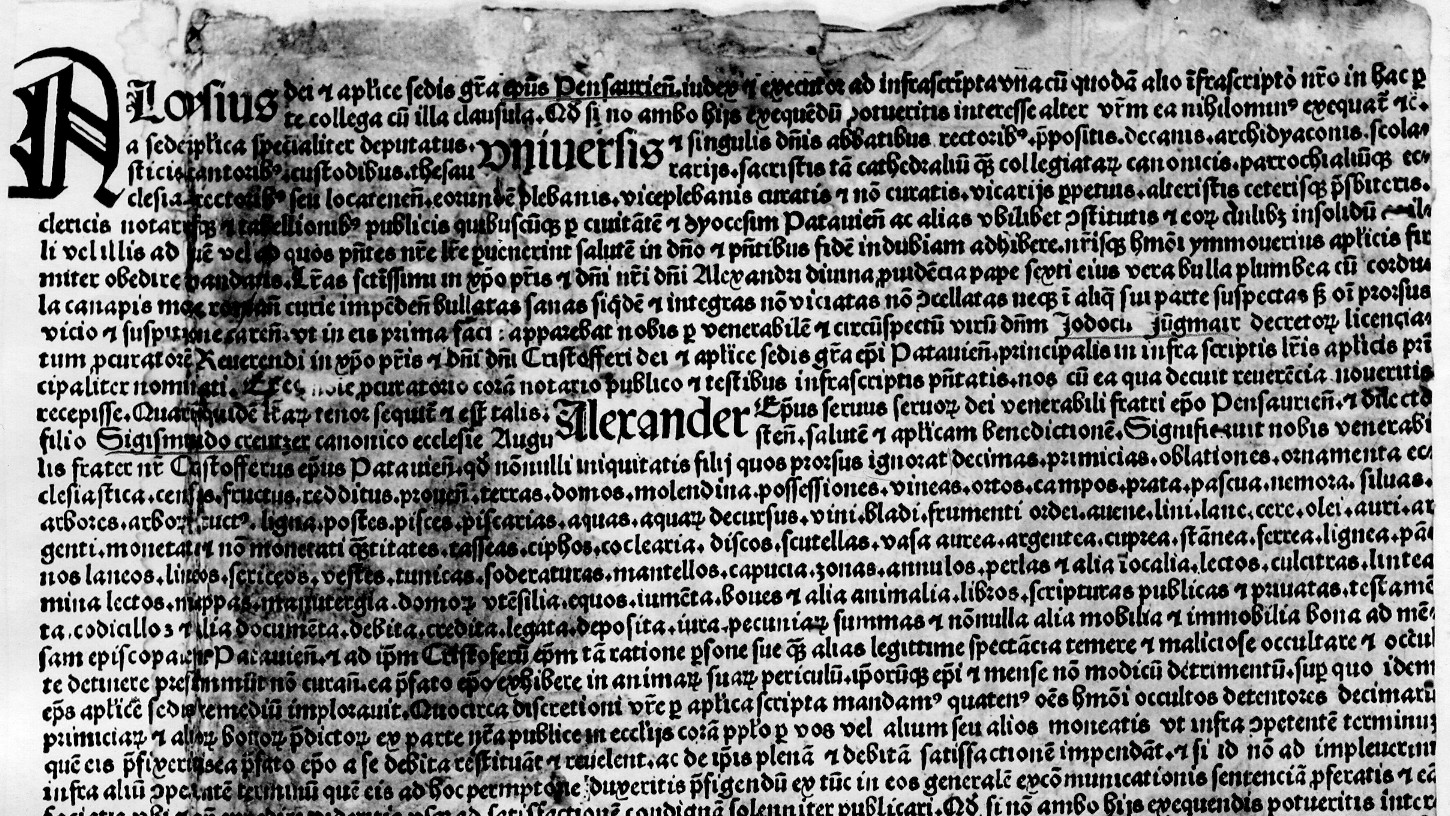 ALoysius dei ⁊ aplice sedis gr̄a ep̄us Pensaurien̄.iudex ⁊ executor ad infrascripta vna cū quodā alio īfrascripto nr̄o in hac p
te collega cū illa clausula.Qd si no ambo hijs exequēdū potueritis interesse alter vr̄m ea nihilominꝰ exequat̄ ⁊c.
a sede aplica specialiter deputatus. vniuersis ⁊ singulis dn̄is abbatibus rectoribꝰ.p̄positis.decanis.archidyaconis.scola
sticis cantoribꝰ.custodibus.thesau rarijs.sacristis tā cathedraliū q̄ꝫ collegiataꝝ canonicis.parrochialiūqꝫ ec
clesiaꝝ rectoribꝰ seu locatenen̄.eorundē plebanis.viceplebanis curatis ⁊ nō curatis.vicarijs ꝑpetuis.alteristis ceterisqꝫ p̄sbiteris.
clericis notarijsqꝫ ⁊ tabellionibꝰ publicis quibuscūqꝫ ꝑ ciuitātē ⁊ dyocesim Patauien̄ ac alias vbilibet ꝯstitutis ⁊ eoꝝ cuilibꝫ insolidū
li vel illis ad quē vel ad quos pn̄tes nr̄e lr̄e ꝑuenerint salutē in dn̄o ⁊ pn̄tibus fidē indubiam adhibere.nr̄isqꝫ hmōi ymmouerius aplicis fir
miter obedire mandatis.Lr̄as sctīssimi in xp̄o pr̄is ⁊ dn̄i nr̄i dn̄i Alexandri diuina ꝓuidēcia pape sexti eius vera bulla plumbea cū cordu
la canapis more roman̄ curie impēden̄ bullatas sanas siqdē ⁊ integras nō viciatas nō ꝯcellatas necqꝫ ī aliq̄ sui parte suspectas sꝫ oī prorsus
vicio ⁊ suspitione caren̄.vt in eis prima faci apparebat nobis ꝑ venerabilē ⁊ circūspectū virū dn̄m Jodocū Jūgmair decretoꝝ licencia
tum ꝓcuratorē Reuerendi in xp̄o pr̄is ⁊ dn̄i dn̄i Cristofferi dei ⁊ aplice sedis gr̄a epī Patauien̄.principalis in infra scriptis lr̄is aplicis pri
cipaliter nominati. ꝓcuratorio corā notario publico ⁊ testibus infrascriptis pn̄tatis.nos cū ea qua decuit reuerēcia noueritis
recepisse.Quarū quidē lr̄aꝝ tenor sequit̄ ⁊ est talis: Alexander Ep̄us seruus seruoꝝ dei venerabili fratri ep̄o Pensaurien̄.⁊ dilecto
filio Sigismundo creutzer canonico ecclesie Augu sten̄.salutē ⁊ aplicam benedictionē.Significauit nobis venerabi
lis frater nr̄ Cristofferus ep̄us Patauien̄.qd nōnulli iniquitatis filij quos prorsus ignorat decimas.primicias.oblationes.ornamenta ec
clesiastica.census.fructus.redditus.prouen̄.terras.domos.molendina.possessiones.vineas.ortos.campos.prata.pascua.nemora.siluas.
arbores.arboꝝ fructꝰ.ligna.postes.pisces.piscarias.aquas.aquaꝝ decursus.vini.bladi.frumenti ordei.auene.lini.lane.cere.olei.auri.ar
genti.monetati ⁊ nō monetati q̄titates.tasseas.ciphos.coclearia.discos.scutellas.vasa aurea.argentea.cuprea.stānea.ferrea.lignea.pā
nos laneos.lineos.sericeos.vestes.tunicas.foderaturas.mantellos.capucia.zonas.annulos.perlas ⁊ alia iocalia.lectos.culcitras.lintea
mina lectos.mappas.manutergia.domoꝝ vtēsilia.equos.iumēta.boues ⁊ alia animalia.libros.scripturas publicas ⁊ priuatas.testamē
ta.codicillos ⁊ alia documēta.debita.credita.legata.deposita.iura.pecuniaꝝ summas ⁊ nōnulla alia mobilia ⁊ immobilia bona ad mē
sam episcopalem Patauien̄.⁊ ad ip̄m Cristoferū ep̄m tā ratione ꝑsone sue q̄ꝫ alias legittime spectācia temere ⁊ maliciose occultare ⁊ occul
te detinere presummūt nō curan̄.ea p̄fato ep̄o exhibere in animaꝝ suaꝝ periculū.ip̄orūqꝫ epī ⁊ mense nō modicū detrimentū.suꝑ quo idem
ep̄s aplice sedis remediū implorauit.Quocirca discretioni vr̄e ꝑ aplica scripta mandamꝰ quatenꝰ oēs hmōi occultos detentores decimarū
primiciaꝝ ⁊ alioꝝ bonoꝝ p̄dictoꝝ ex parte nr̄a publice in ecclijs corā pplo ꝑ vos vel alium seu alios moneatis vt infra ꝯpetentē terminū
quē eis p̄fixeritis ea p̄fato ep̄o a se debita restituāt ⁊ reuelent.ac de ip̄is plenā ⁊ debitā satisfactionē impendāt.⁊ si id nō ad impleuerint
infra aliū ꝯpetentē terminū quē eis ad hoc permptorie duxeritis p̄figendū ex tūc in eos generalē excōmunicationis sentenciā ꝓferatis ⁊ eā
ad satisfactionē condignā solenniter publicari.Qd si nō ambo hijs exequendis potueritis inter